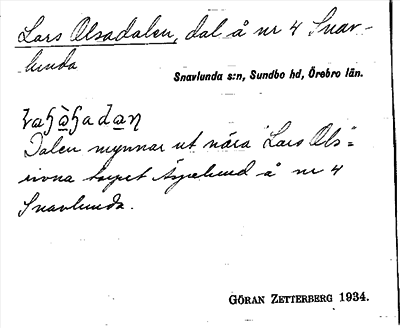 Lars Olsadalen, dal å nr 4 Snav-
lunda
Snavlunda s:n, Sundbo hd, Örebro län.
Dalen mynnar ut nära "Lars Ols"=
rivna torpet Aspelund å nr 4
Snavlunda.
GÖRAN ZETTERBERG 1934.